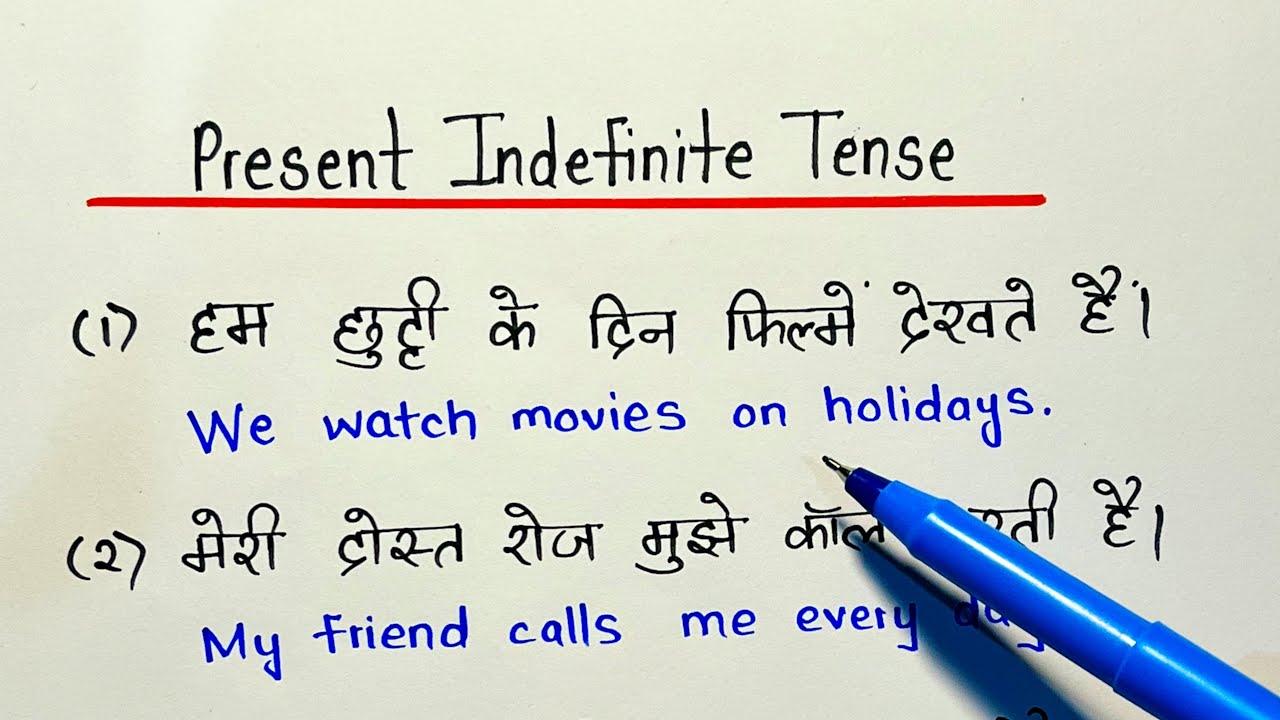 Present Indefinite Tense
(1) हम छुट्टी के दिन फिल्में देखते हैं।
We watch movies on holidays.
(2) मेरी दोस्त रोज मुझे कॉल रती है।
My friend calls me every day